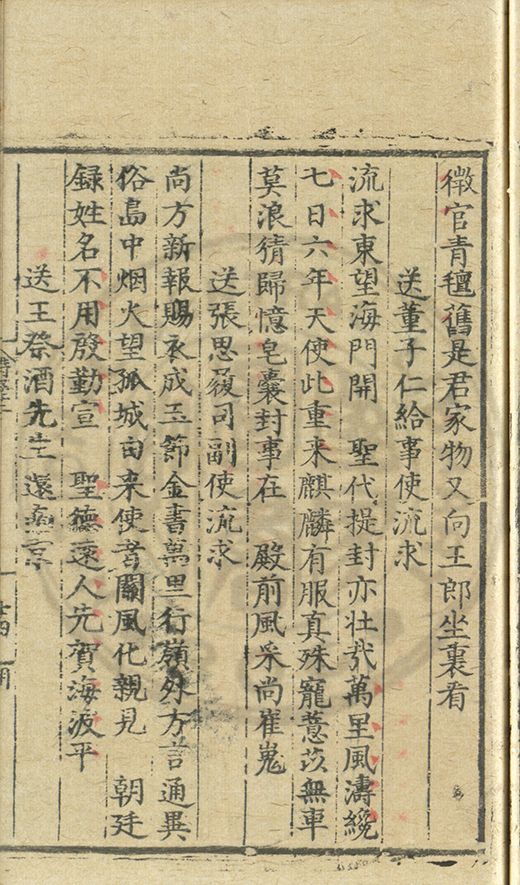 徵官青氊舊是君家物又向王郎坐裏看
送董子仁給事使流求
流求東望海門開　聖代提封亦壯哉萬里風濤纔
七日六年天使此重来麒麟有服真殊寵薏苡無車
莫浪猜歸憶皂囊封事在　殿前風采尚崔嵬
送張思蕿司副使流求
尚方新報賜衣成玉節金書萬里行嶺外方言通異
俗島中烟火望孤城由来使者關風化親見　朝廷
録姓名不用殷勤宣　聖德逺人先賀海波平
送王祭酒先生還燕京